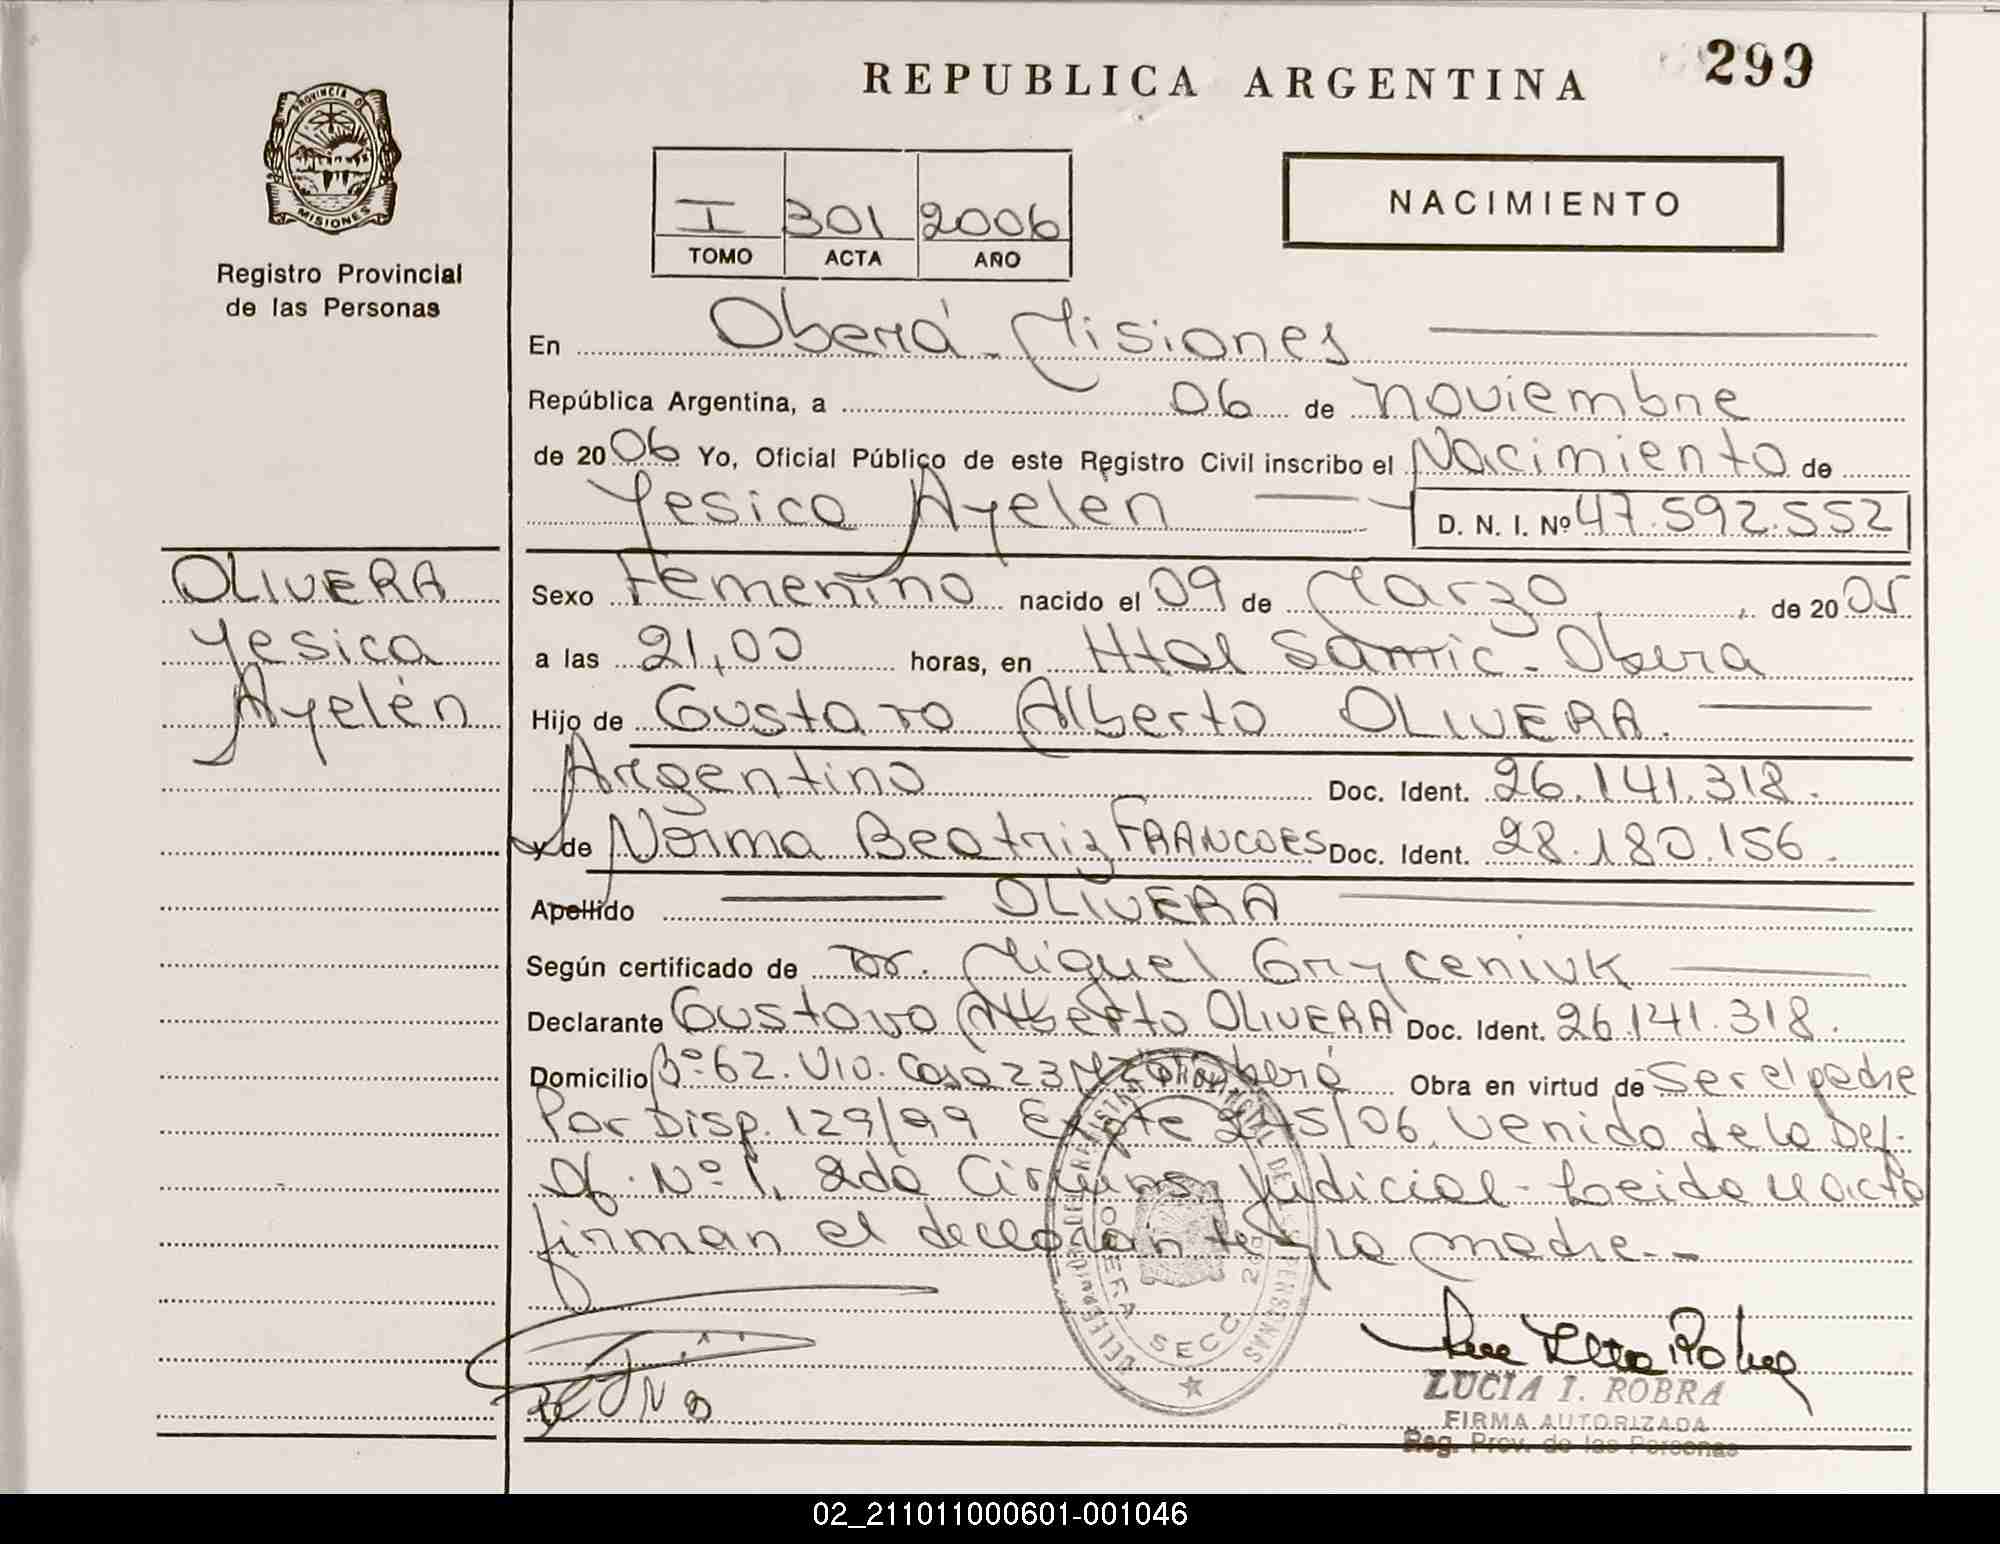 REPUBLICA ARGENTINA
299
PROVINCIA DE
MISIONES
Registro Provincial
de las Personas
I 301 2006
TOMO ACTA AÑO
NACIMIENTO
En Oberá - Misiones
República Argentina, a 06 de noviembre
de 2006 Yo, Oficial Público de este Registro Civil inscribo el Nacimiento de
Yesica Ayelén D. N. I. Nº 47.592.552
OLIVERA
Yesica
Ayelén
Sexo Femenino nacido el 09 de Marzo de 2005
a las 21,00 horas, en Htal Samic - Oberá
Hijo de Gustavo Alberto OLIVERA.
Argentino Doc. Ident. 26.141.318.
y de Norma Beatriz FRANCOES Doc. Ident. 28.180.156.
Apellido OLIVERA
Según certificado de Dr. Miguel Gryceniuk
Declarante Gustavo Alberto OLIVERA Doc. Ident. 26.141.318.
Domicilio Bº 62. Viv. Casa 23 Oberá Obra en virtud de Ser el padre
Por Disp. 129/99 Expte 245/06. Venido de la Def.
Of. Nº 1. 2da Circuns. Judicial - Leida el acta
firman el declarante y la madre.-
OBERA SECC. 2
LUCIA I. ROBRA
FIRMA AUTORIZADA
Reg. Prov. de las Personas
02_211011000601-001046